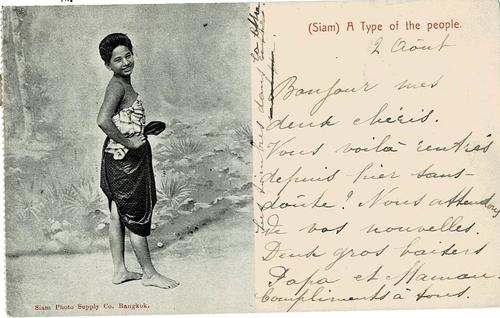 (Siam) A Type of the people.
2 Août
Bonjour mes
deux chéris.
Vous voilà rentrés
depuis hier sans-
doute? Nous attendons
de vos nouvelles.
Deux gros baisers
Papa et Maman.
Compliments à tous.
Siam Photo Supply Co, Bangkok.